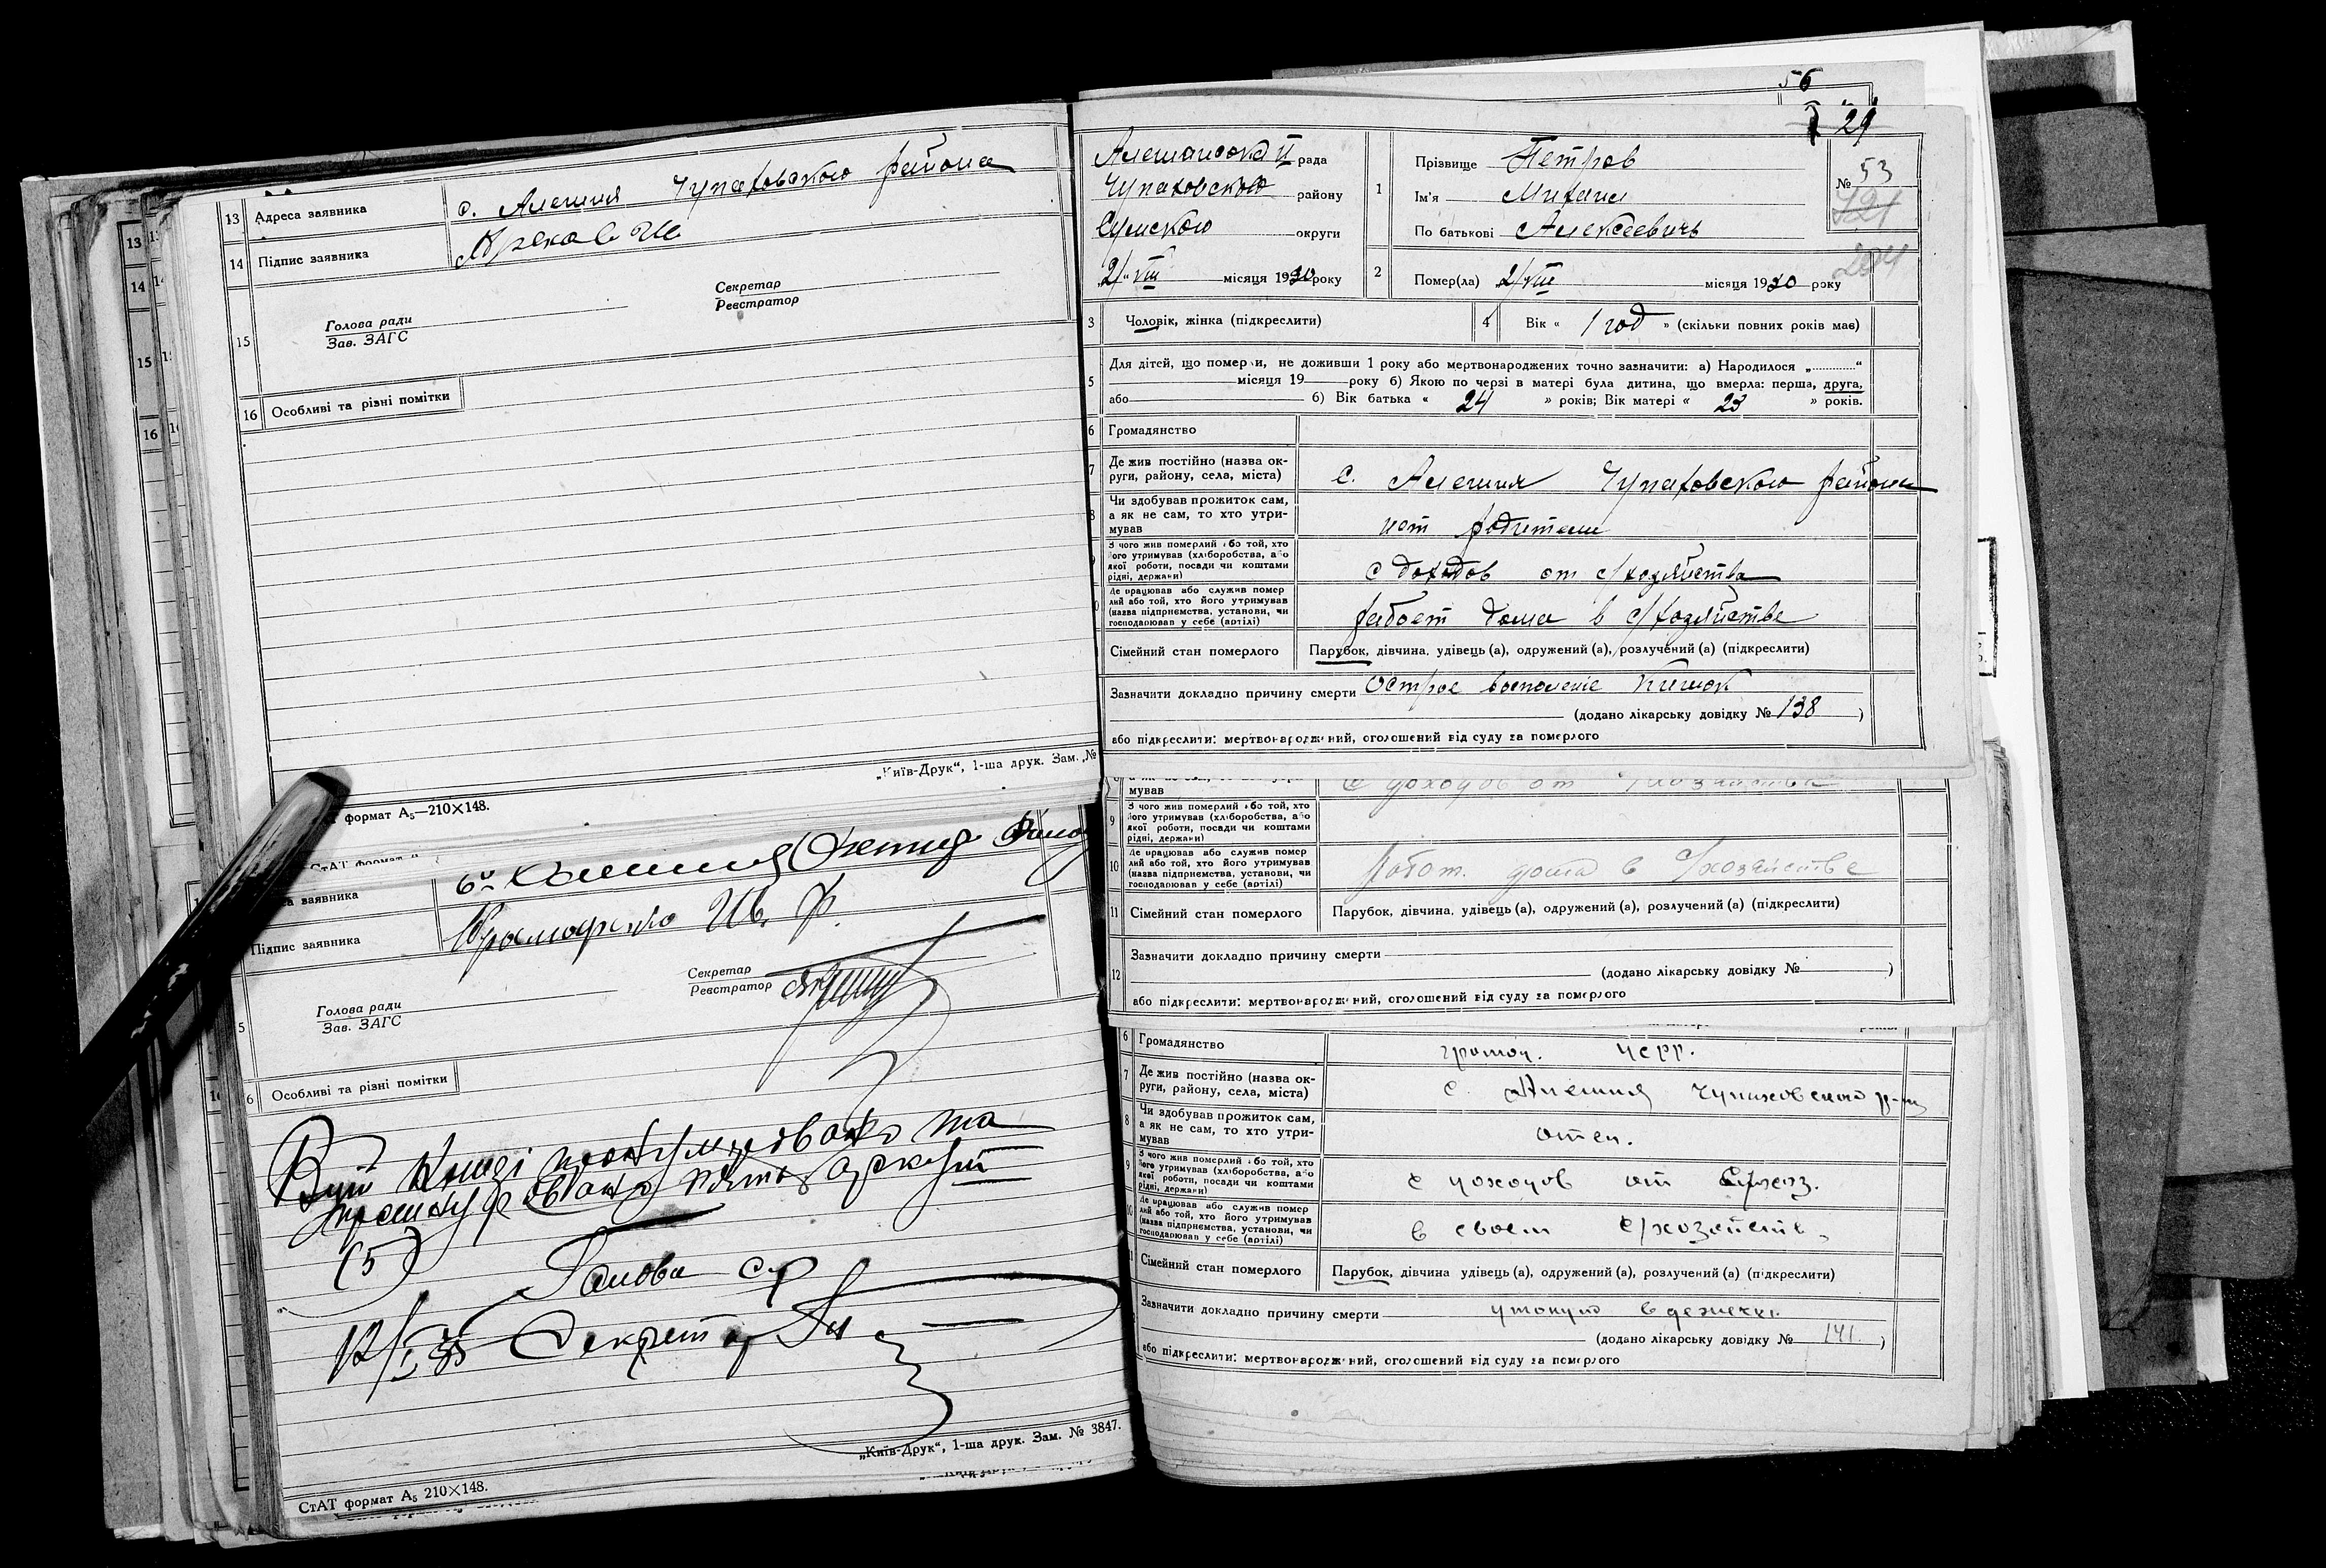 13 Адреса заявника с. Алешня Чупаховского района
14 Підпис заявника
Секретар
Реєстратор
15 Голова ради
Зав. ЗАГС
16 Особливі та різні помітки
„Київ-Друк“, 1-ша друк. Зам. „№
формат А₅—210×148.
заявника
Підпис заявника Ив. Ф.
Секретар
Реєстратор
5 Голова ради
Зав. ЗАГС
6 Особливі та різні помітки
В цій книзі пронумеровано та
прошнуровано п'ять аркуш
(5)
Голова с/р
Секретар
„Київ-Друк“, 1-ша друк. Зам. № 3847.
СтАТ формат А₅ 210×148.
56
29
Алешанская II рада
Чупаховского району
Сумского округи
„2/“ VIII місяця 1930 року
1 Прізвище Петров
Ім'я Михаил
По батькові Алексеевичъ
№ 53
721
204
2 Помер(ла) 2/VIII місяця 1930 року
3 Чоловік, жінка (підкреслити)
4 Вік « 1 год » (скільки повних років має)
5 Для дітей, що померли, не доживши 1 року або мертвонароджених точно зазначити: а) Народилося „............“
місяця 19 року б) Якою по черзі в матері була дитина, що вмерла: перша, друга,
або б) Вік батька « 24 » років; Вік матері « 23 » років.
6 Громадянство
7 Де жив постійно (назва округи, району, села, міста) с. Алешня Чупаховского района
8 Чи здобував прожиток сам, а як не сам, то хто утримував нет родители
З чого жив померлий або той, хто його утримував (хліборобства, або якої роботи, посади чи коштами рідні, держави) с доходов от с/хозяйства
Де працював або служив померлий або той, хто його утримував (назва підприємства, установи, чи господарював у себе (артілі) работ дома в с/хозяйстве
Сімейний стан померлого Парубок, дівчина, удівець (а), одружений (а), розлучений (а) (підкреслити)
Зазначити докладно причину смерти Острое воспаление кишок
(додано лікарську довідку № 138 )
або підкреслити: мертвонароджений, оголошений від суду за померлого
мував с доходов от с/хозяйства
9 З чого жив померлий або той, хто його утримував (хліборобства, або якої роботи, посади чи коштами рідні, держави)
10 Де працював або служив померлий або той, хто його утримував (назва підприємства, установи, чи господарював у себе (артілі) Работ. дома в с/хозяйстве
11 Сімейний стан померлого Парубок, дівчина, удівець (а), одружений (а), розлучений (а) (підкреслити)
12 Зазначити докладно причину смерти
(додано лікарську довідку № )
або підкреслити: мертвонароджений, оголошений від суду за померлого
6 Громадянство громад. УСРР.
7 Де жив постійно (назва округи, району, села, міста) с. Алешня Чупаховского р-на
8 Чи здобував прожиток сам, а як не сам, то хто утримував отец.
9 З чого жив померлий або той, хто його утримував (хліборобства, або якої роботи, посади чи коштами рідні, держави) с доходов от с/хоз.
10 Де працював або служив померлий або той, хто його утримував (назва підприємства, установи, чи господарював у себе (артілі) в своем с/хозяйств.
Сімейний стан померлого Парубок, дівчина удівець (а), одружений (а), розлучений (а) (підкреслити)
Зазначити докладно причину смерти утонул в
(додано лікарську довідку № 141. )
або підкреслити: мертвонароджений, оголошений від суду за померлого